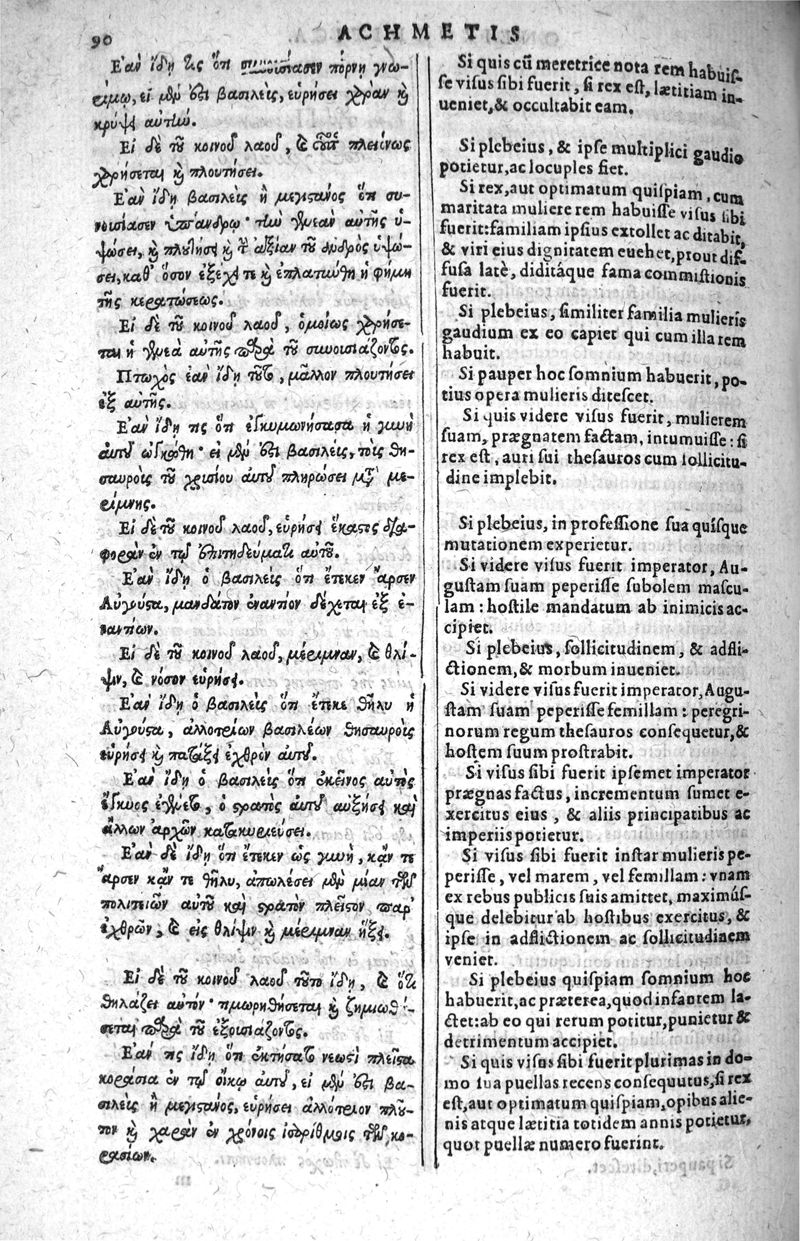 90
ACHMETIS
Ἐὰν ἴδῃ τις ὅτι συνουσίασεν πόρνῃ γνω-
ρίμῳ, εἰ μὲν ἔστι βασιλεὺς, εὑρήσει χαρὰν καὶ
κρύψει αὐτήν.
Εἰ δὲ τοῦ κοινοῦ λαοῦ, πλειόνως
χαρήσεται καὶ πλουτήσει.
Ἐὰν ἴδῃ βασιλεὺς ἢ μεγιστάνος ὅτι συ-
νουσίασεν ὑπάνδρῳ· τὴν γενεὰν αὐτῆς ὑ-
ψώσει, καὶ πλουτήσει καὶ τὴν ἀξίαν τοῦ ἀνδρὸς ὑψώ-
σει, καθ' ὅσον ἐξέχη τε καὶ ἐπλατύνθη ἡ φήμη
τῆς κερατώσεως.
Εἰ δὲ τοῦ κοινοῦ λαοῦ, ὁμοίως χαρήσε-
ται ἡ γενεὰ αὐτῆς παρὰ τοῦ συνουσιάζοντος.
Πτωχὸς ἐὰν ἴδῃ τοῦτο, μᾶλλον πλουτήσει
ἐξ αὐτῆς.
Ἐὰν ἴδῃ τις ὅτι ἐγκυμονήσασα ἡ γυνὴ
αὐτοῦ ὠγκώθη· εἰ μὲν ἔστι βασιλεὺς, τοὺς θη-
σαυροὺς τοῦ χρυσίου αὐτοῦ πληρώσει μετὰ με-
ρίμνης.
Εἰ δὲ τοῦ κοινοῦ λαοῦ, εὑρήσει ἕκαστος δια-
φορὰν ἐν τῷ ἐπιτηδεύματι αὐτοῦ.
Ἐὰν ἴδῃ ὁ βασιλεὺς ὅτι ἔτεκεν ἄρσεν
Αὐγούστα, μανδάτον ἐναντίον δέχεται ἐξ ἐ-
ναντίων.
Εἰ δὲ τοῦ κοινοῦ λαοῦ, μέριμναν, καὶ θλί-
ψιν, καὶ νόσον εὑρήσει.
Ἐὰν ἴδῃ ὁ βασιλεὺς ὅτι ἔτεκε θῆλυ ἡ
Αὐγούστα, ἀλλοτρίων βασιλέων θησαυροὺς
εὑρήσει καὶ πατάξει ἐχθρὸν αὐτοῦ.
Ἐὰν ἴδῃ ὁ βασιλεὺς ὅτι ἐκεῖνος αὐτὸς
ἔγκυος ἐγένετο, ὁ στρατὸς αὐτοῦ αὐξήσει καὶ
ἄλλων ἀρχῶν κατακυριεύσει.
Ἐὰν δὲ ἴδῃ ὅτι ἔτεκεν ὡς γυνὴ, κἄν τε
ἄρσεν κἄν τε θῆλυ, ἀπολέσει μὲν μίαν τῶν
πολιτειῶν αὐτοῦ καὶ στρατὸν πλεῖστον παρ'
ἐχθρῶν, καὶ εἰς θλίψιν καὶ μέριμναν ἥξει.
Εἰ δὲ τοῦ κοινοῦ λαοῦ τοῦτο ἴδῃ, καὶ ὅτι
θηλάζει αὐτὸν· τιμωρηθήσεται καὶ ζημιωθή-
σεται παρὰ τοῦ ἐξουσιάζοντος.
Ἐὰν τις ἴδῃ ὅτι ἐκτήσατο νεωστὶ πλεῖστα
κοράσια ἐν τῷ οἴκῳ αὐτοῦ, εἰ μὲν ἔστι βα-
σιλεὺς ἢ μεγιστάνος, εὑρήσει ἀλλότριον πλοῦ-
τον καὶ χαρὰν ἐν χρόνοις ἰσαρίθμοις τῶν κο-
ρασίων.
Si quis cũ meretrice nota rem habuis-
se visus sibi fuerit, si rex est, lætitiam in-
ueniet, & occultabit eam.
Si plebeius, & ipse multiplici gaudio
potietur, ac locuples fiet.
Si rex, aut optimatum quispiam, cum
maritata muliere rem habuisse visus sibi
fuerit: familiam ipsius extollet ac ditabit,
& viri eius dignitatem euehet, prout dif-
fusa latè, diditáque fama commistionis
fuerit.
Si plebeius, similiter familia mulieris
gaudium ex eo capiet qui cum illa rem
habuit.
Si pauper hoc somnium habuerit, po-
tius opera mulieris ditescet.
Si quis videre visus fuerit, mulierem
suam, prægnatem factam, intumuisse: si
rex est, auri sui thesauros cum sollicitu-
dine implebit.
Si plebeius, in professione sua quisque
mutationem experietur.
Si videre visus fuerit imperator, Au-
gustam suam peperisse subolem mascu-
lam: hostile mandatum ab inimicis ac-
cipiet.
Si plebeius, sollicitudinem, & adfli-
ctionem, & morbum inueniet.
Si videre visus fuerit imperator, Augu-
stam suam peperisse femillam: peregri-
norum regum thesauros consequetur, &
hostem suum prostrabit.
Si visus sibi fuerit ipsemet imperator
prægnas factus, incrementum sumet e-
xercitus eius, & aliis principatibus ac
imperiis potietur.
Si visus sibi fuerit instar mulieris pe-
perisse, vel marem, vel femillam: vnam
ex rebus publicis suis amittet, maximús-
que delebitur ab hostibus exercitus, &
ipse in adflictionem ac sollicitudinem
veniet.
Si plebeius quispiam somnium hoc
habuerit, ac præterea, quod infantem la-
ctet: ab eo qui rerum potitur, punietur &
detrimentum accipiet.
Si quis visus sibi fuerit plurimas in do-
mo sua puellas recens consequutus, si rex
est, aut optimatum quispiam, opibus alie-
nis atque lætitia totidem annis potietur,
quot puellæ numero fuerint.